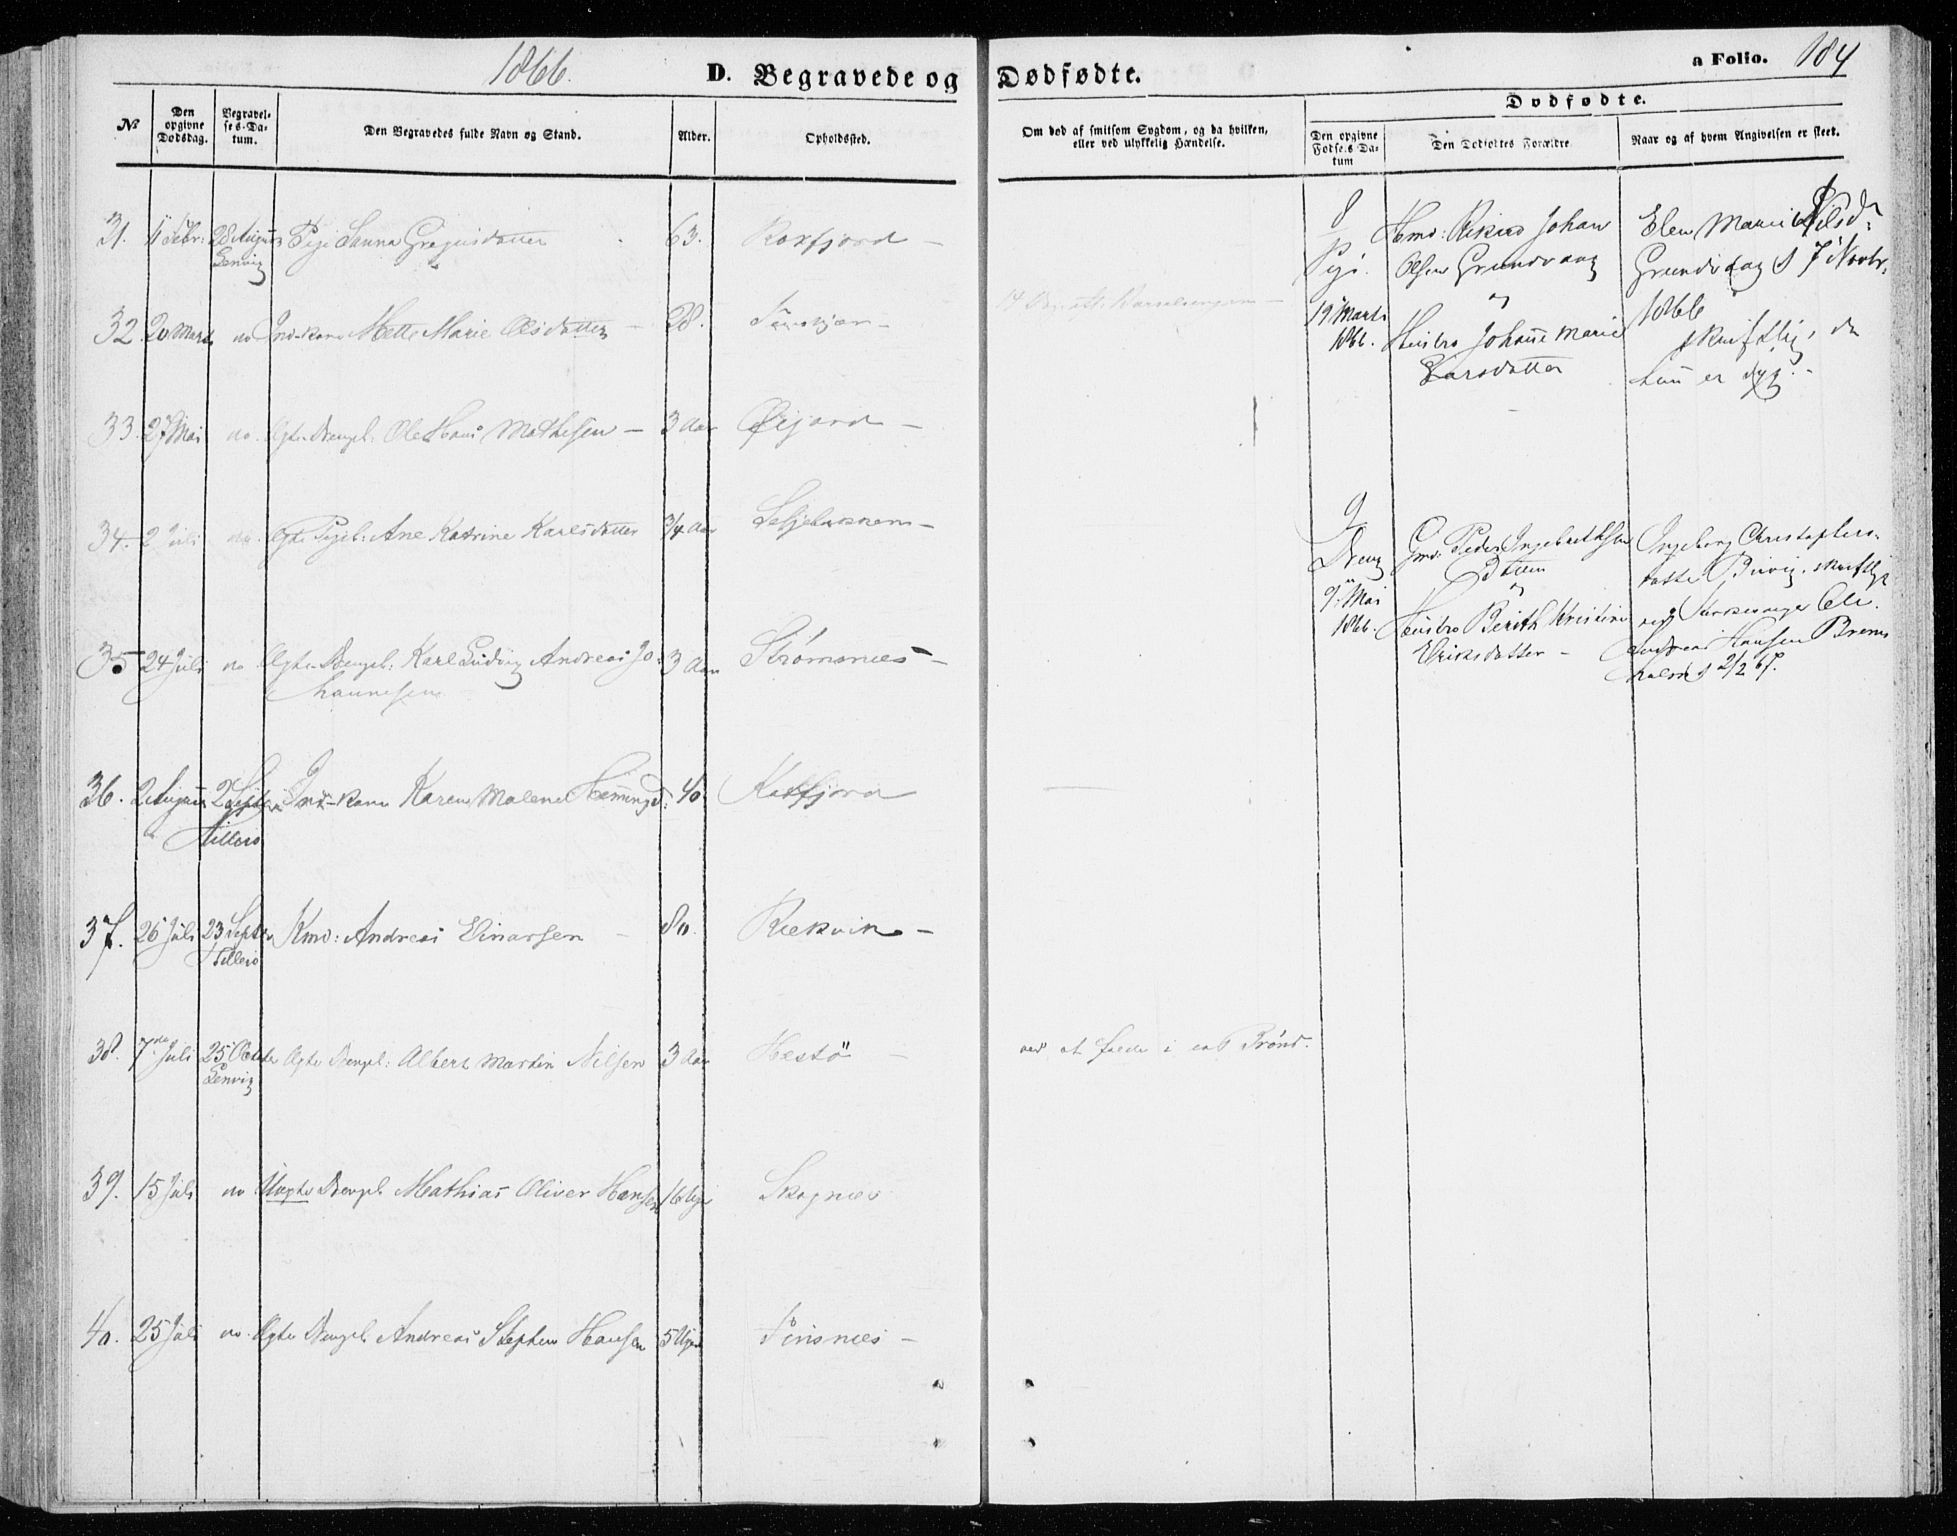 1866.
D. Begravede og Dødfødte.
a Folio. 184
Dødfødte.
No
Den opgivne Dødsdag.
Begravelses-Datum.
Den Begravedes fulde Navn og Stand.
Alder.
Opholdssted.
Om død af smitsom Sygdom, og da hvilken, eller ved ulykkelig Hændelse.
Den opgivne Fødsels Datum
Den Dødfødtes Forældre
Naar og af hvem Angivelsen er skeet.
31. 11 Febr: 28 August Pige Sanna Gregusdatter 63. Roxfjord —
Lenvig
32. 20 Marts do Ind-kone Mette Marie Olsdatter — 28.
33. 27 Mai do. Ægte Drengeb: Ole Hans Mathisen — 3 Aar Øijord —
34. 2 Juli do. Ægte Pigeb: Ane Katrine Karlsdatter 3/4 Aar
35 24 Juli do Ægte Drengeb: Karl Ludvig Andreas Jo- 3 Aar Strømsnes —
hannesen
36. 2 August 2 Septbr Ind-kone Karen Malene Hemmingsd: 40. Katfjord
Hillesø
37. 26 Juli 23 Septbr Kmd: Andreas Einarsen — 80. Rekvik —
Hillesø
38. 7de Juli 25 Octbr Ægte Drengeb: Albert Martin Nilsen 3 Aar Hestö — ved at falde i en Brønd.
Lenvig
39. 15 Juli do Uægte Drengeb. Mathias Oliver Hansen 16 Uger Skognes
40. 25 Juli do. Ægte Drengeb. Andreas Stephen Hansen 5 Uger Finsnes —
8
Pige.
19 Marts
1866.
Hmd: Rikard Johan
Olsen Grundvaag
og
Hustro Johanne Marie
Larsdatter
Elen Marie Nilsd:
Grundvaag d 7 Novbr.
1866
skriftlig, da
hun er syg. -
9
Dreng
9. Mai
1866.
Gmd: Peder Ingebrethsen
og
Hustro Berith Kristine
Eriksdatter —
Ingeborg Christophers-
datter skriftlig
ved Kirkesanger Ole
Andreas Hansen
d 2/2 67.